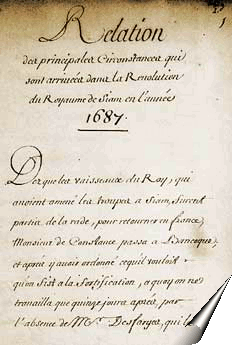 Relation
des principales Circonstances qui
sont arrivées dans la Revolution
du Royaume de Siam en l'année
1687.
Des que les vaisseaux du Roy, qui
avoient amené les troupes a Siam, furent
partis de la rade, pour retourner en france,
Monsieur de Constance passa a Bancoque,
et aprés y avoir ordonné ce qu'il vouloit
qu'on fist a la fortification, a quoy on ne
travailla que quinze jours aprés, par
l'absence de Mr. Desfarges, qui